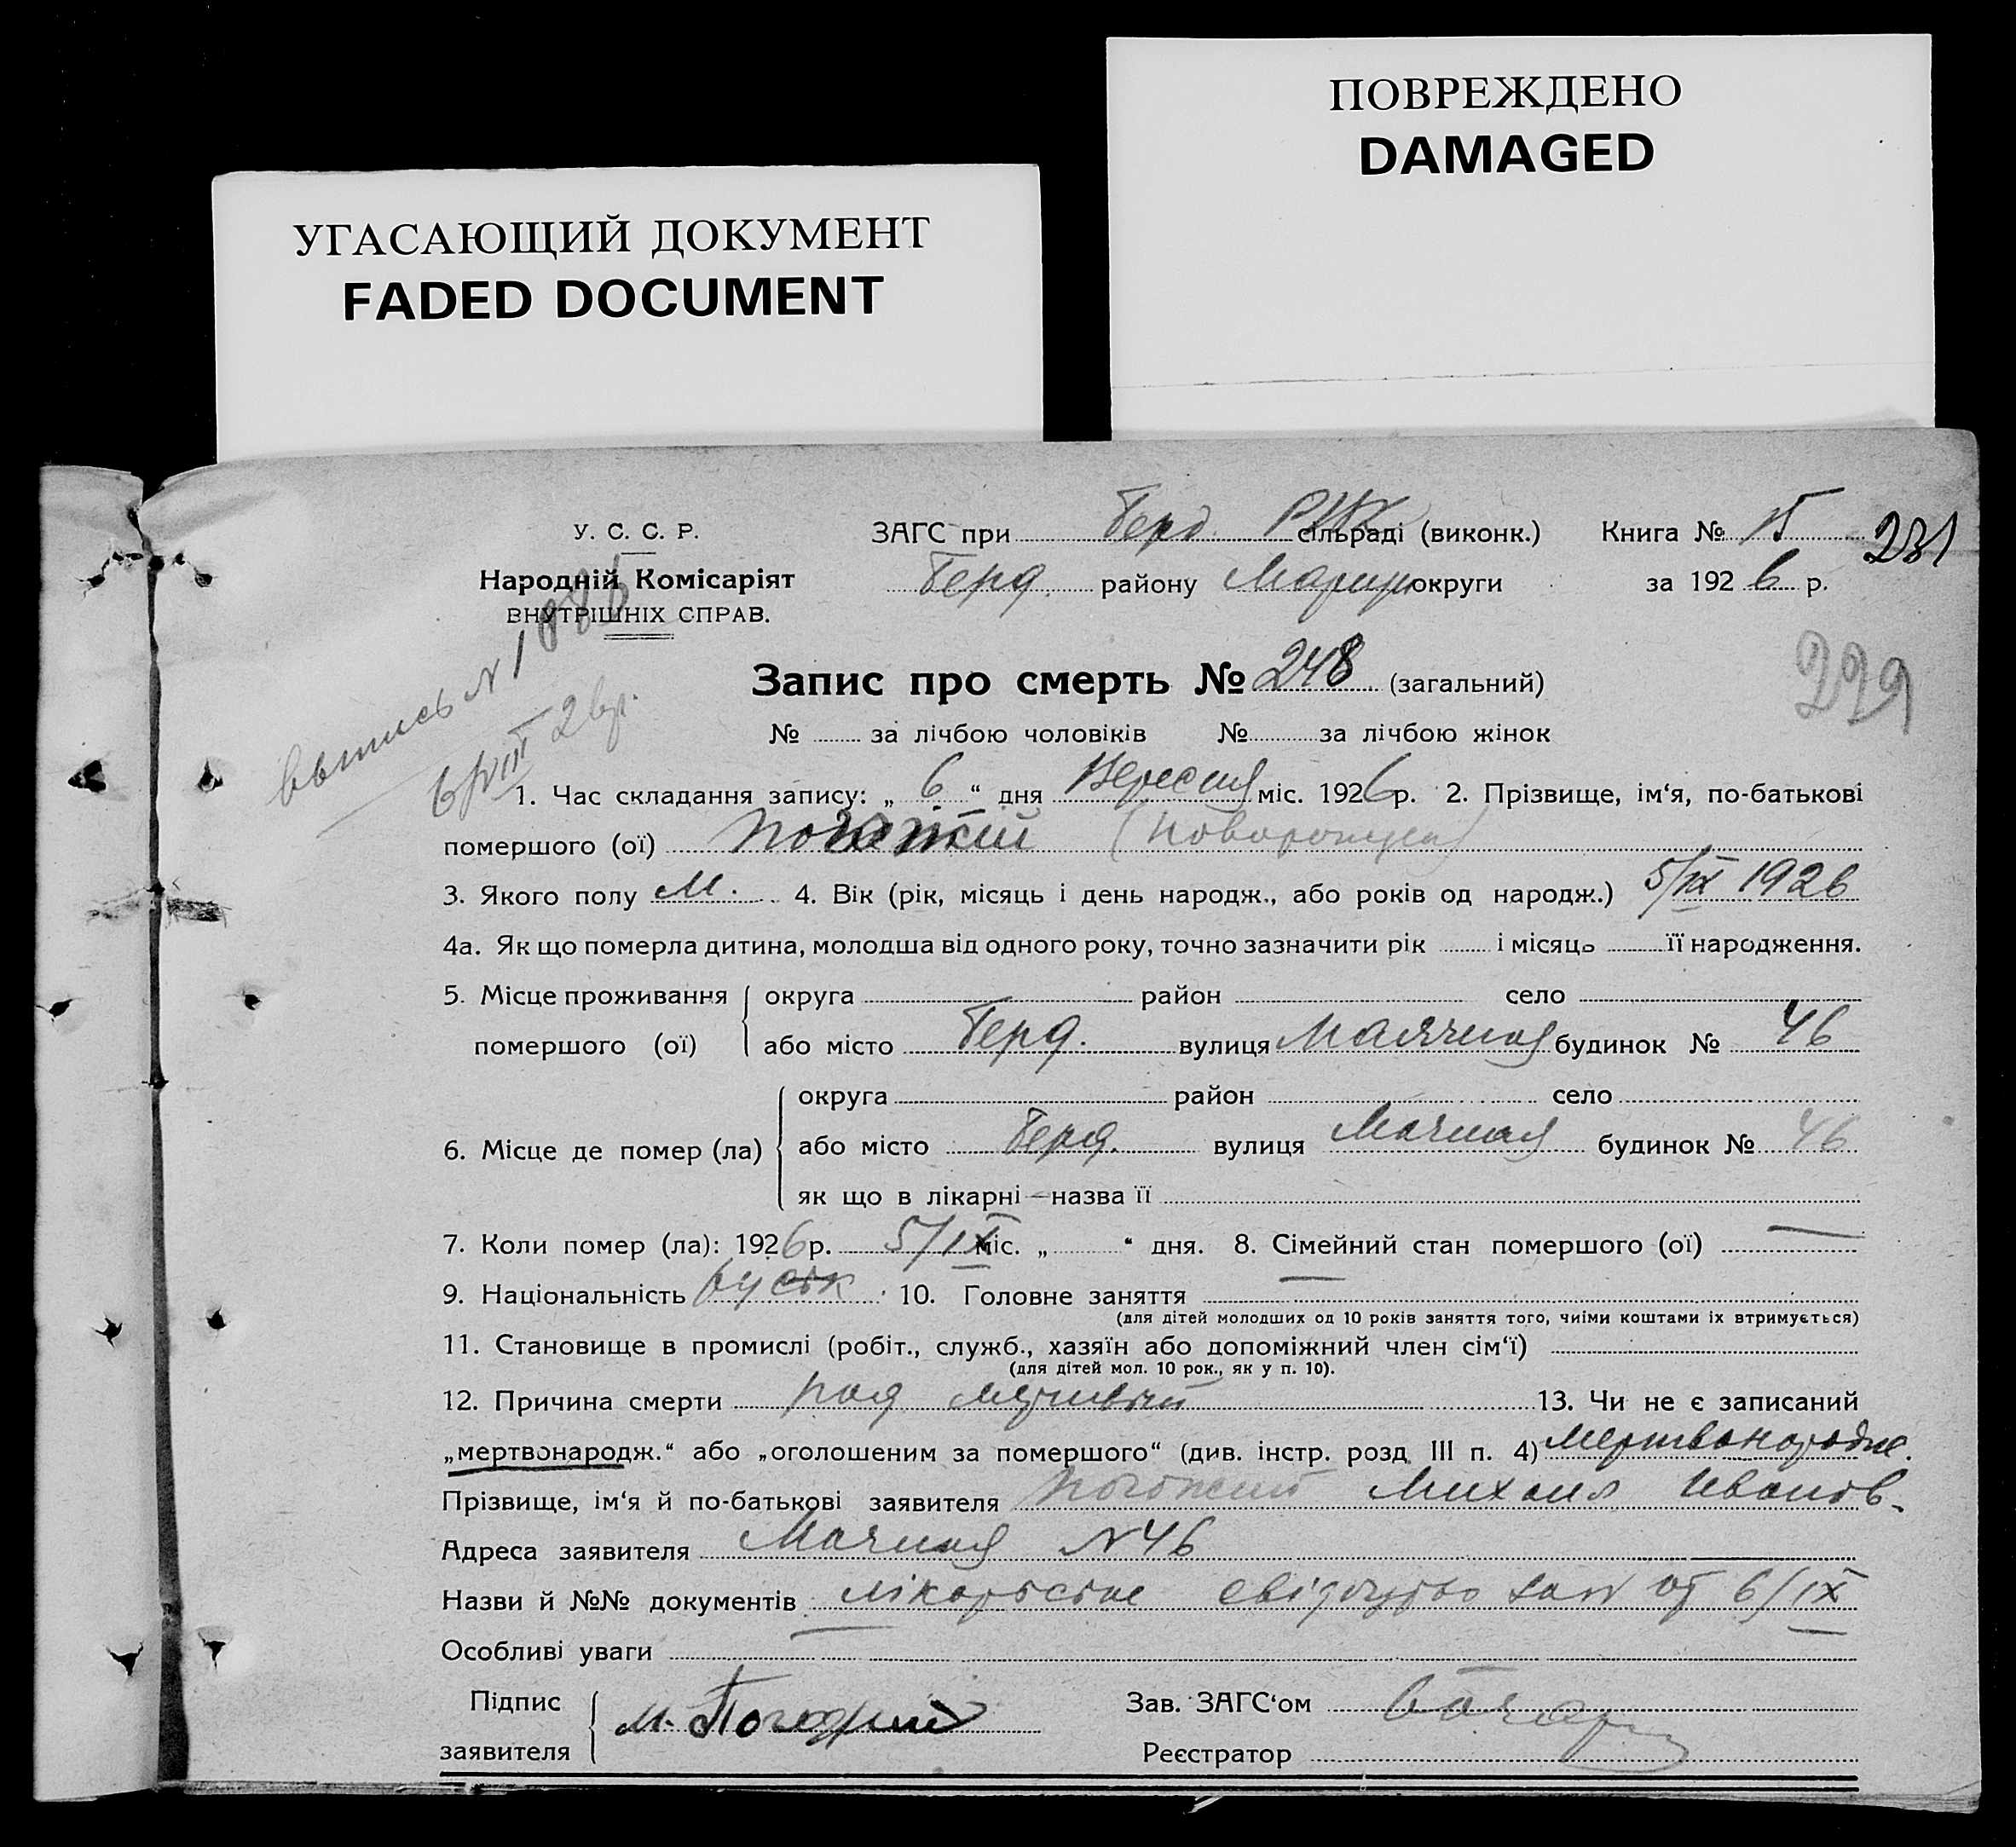 ПОВРЕЖДЕНО
DAMAGED
УГАСАЮЩИЙ ДОКУМЕНТ
FADED DOCUMENT
У. С. С. Р.
Народній Комісаріят
ВНУТРІШНІХ СПРАВ.
ЗАГС при Берд. РИК сільраді (виконк.) Книга № 231
Берд. району Мариуп округи за 1926 р.
выпись N
299
Запис про смерть № 248 (загальний)
№ за лічбою чоловіків № за лічбою жінок
1. Час складання запису: „ 6 “ дня Вересня міс. 1926 р. 2. Прізвище, ім‘я, по-батькові
помершого (ої)
3. Якого полу М. 4. Вік (рік, місяць і день народж., або років од народж.) 5/IX 1926
4а. Як що померла дитина, молодша від одного року, точно зазначити рік і місяць її народження.
5. Місце проживання округа район село
помершого (ої) або місто Берд. вулиця будинок № 46
округа район село
6. Місце де помер (ла) або місто Берд. вулиця будинок № 46
як що в лікарні—назва її
7. Коли помер (ла): 1926 р. 5/IX міс. „ “ дня. 8. Сімейний стан помершого (ої) —
9. Національність руськ 10. Головне заняття —
(для дітей молодших од 10 років заняття того, чиїми коштами їх втримується)
11. Становище в промислі (робіт., служб., хазяїн або допоміжний член сім‘ї)
(для дітей мол. 10 рок., як у п. 10).
12. Причина смерти 13. Чи не є записаний
„мертвонародж.“ або „оголошеним за помершого“ (див. інстр. розд III п. 4) Мертвонародже.
Прізвище, ім‘я й по-батькові заявителя Михаил Иванов.
Адреса заявителя N 46
Назви й №№ документів лікарське свідоцтво 6/IX
Особливі уваги —
Підпис
заявителя
М.
Зав. ЗАГС‘ом
Реєстратор